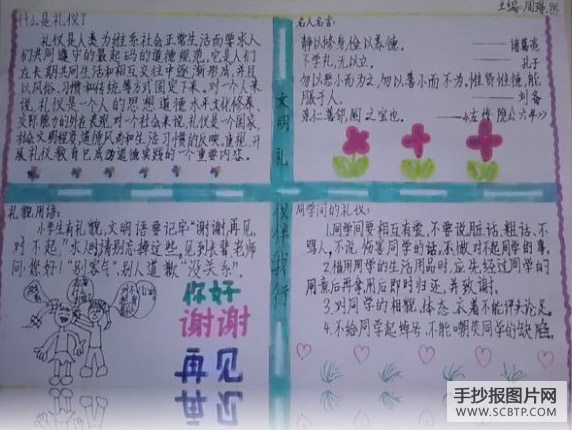 主编:周
什么是礼仪?
礼仪是人类为维系社会正常生活而要求人
们共同遵守的最起码的道德规范,它是人们
在长期共同生活和相互交往中逐渐形成,并且
以风俗、习惯和传统等方式固定下来。对一个人来
说,礼仪是一个人的思想道德水平、文化修养、
交际能力的外在表现,对一个社会来说,礼仪是一个国家、
社会文明程度、道德风尚和生活习惯的反映。重视、开
展礼仪教育已成为道德实践的一个重要内容。
名人名言:
静以修身,俭以养德。——诸葛亮
不学礼,无以立。——孔子
勿以恶小而为之,勿以善小而不为。惟贤惟德,能
服于人。——刘备
亲仁善邻,国之宝也。——《左传·隐公六年》
文明礼
仪伴我行
礼貌用语:
小学生有礼貌,文明语要记牢“谢谢,再见,
对不起,”求人时请别忘掉这些,见到长辈老师
问“您好!”“别客气”,别人道歉“没关系”。
你好
谢谢
再见
同学间的礼仪:
1.同学间要相互有爱,不要说脏话、粗话、不
骂人,不说伤害同学的话,不做对不起同学的事。
2.借用同学的生活用品时,应先经过同学的
同意后再拿,用后即时归还,并致谢。
3.对同学的相貌、体态、衣着不能评头论足。
4.不给同学起绰号,不能嘲笑同学的缺陷。
手抄报图片网
WWW.SCBTP.COM